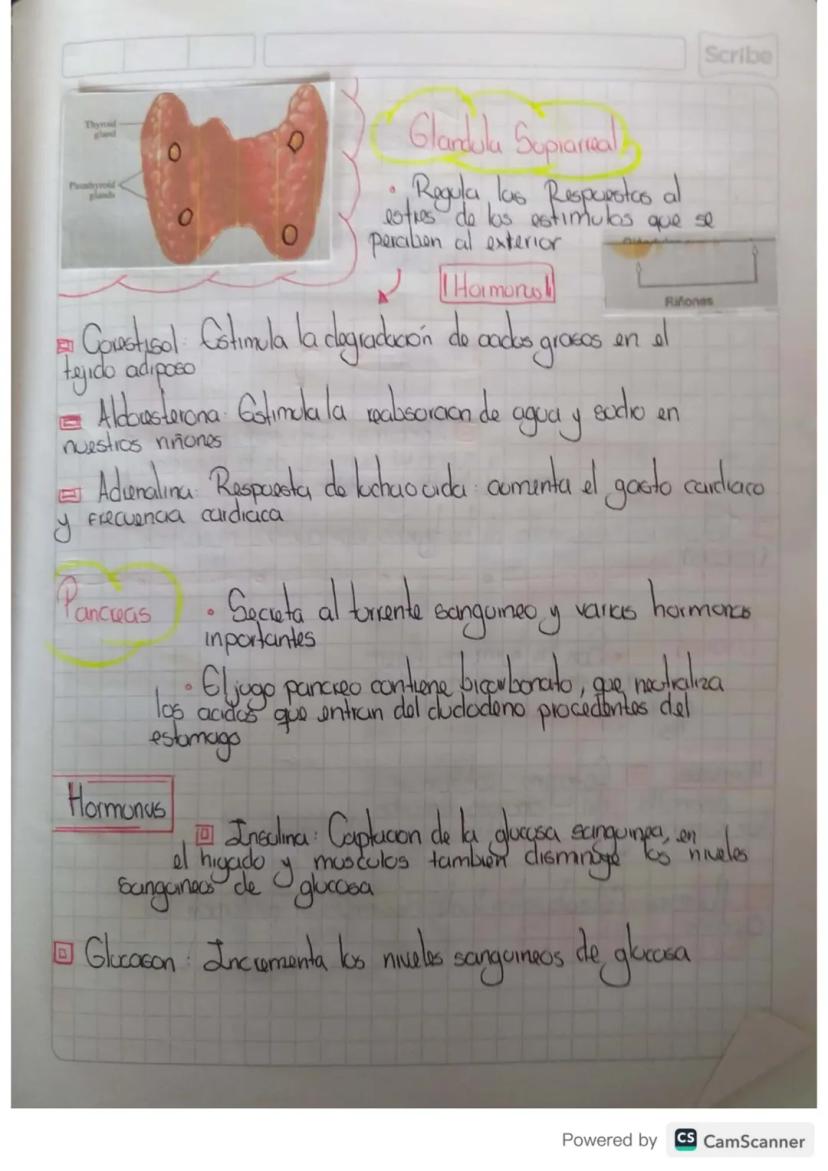 Scribe
Thyroid
gland
Parathyroid
glands
Glandula Suprarreal
• Regula las Respuestas al
estres de los estimulos que se
perciben al exterior
Hormonas
Riñones
Corestisol: Estimula la degradación de acidos grasos en el
tejido adiposo
Aldoesterona: Estimula la reabsorcion de agua y sodio en
nuestros riñones
Adrenalina: Respuesta de lucha o uida: aumenta el gasto cardiaco
y Frecuencia cardiaca
Pancreas
• Secreta al torrente sanguineo y varias hormonas
inportantes
• El jugo pancreo contiene bicarbonato, que neutraliza
los acidos que entran del duodeno procedentes del
estomago
Hormonas
Insulina: Captacion de la glucosa sanguinea, en
el higado y musculos tambien disminuye los niveles
sanguineos de glucosa
Glucagon: Incrementa los niveles sanguineos de glucosa
Powered by CS CamScanner